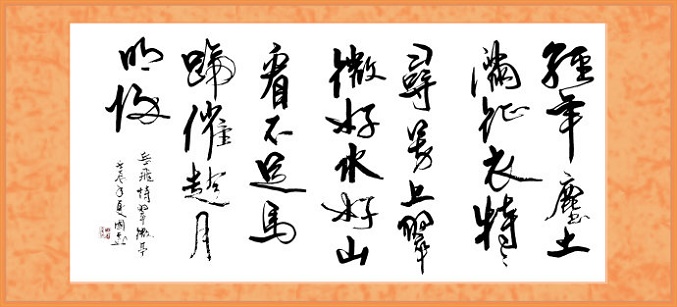 經年塵土
滿征衣特々
尋芳上翠
微好水好山
看不足馬
蹄催趁月
明歸
岳飛詩翠微亭
壬辰年夏國